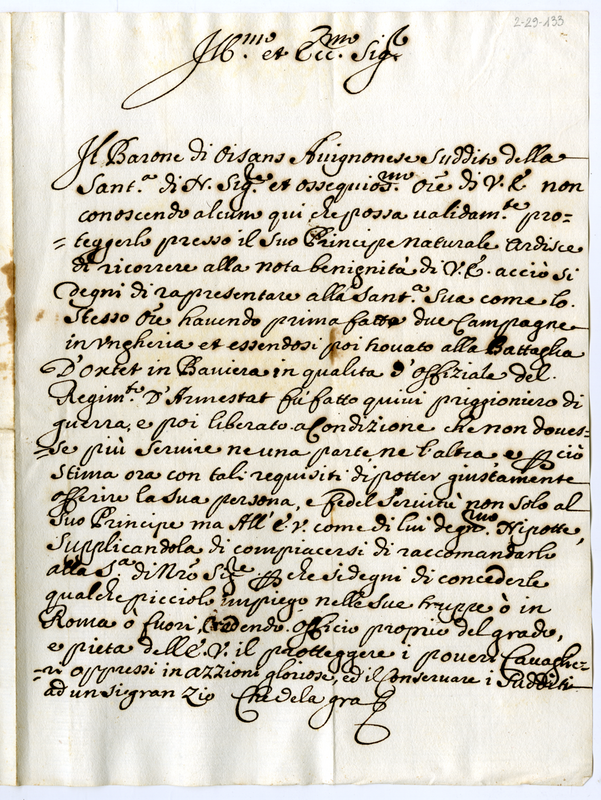 2-29-133
Ill.mo et Ecc.mo Sig.r
Il Barone di Oisans Avignonese Suddito della
Sant.a di N. Sig.re et ossequios.mo Ore di V. E. non
conoscendo alcuno qui che possa validam.te pro=
=teggerlo presso il Suo Principe naturale Ardisce
di ricorrere alla nota benignità di V.E. acciò si
degni di rapresentare alla Sant.a Sua come lo
Stesso Ore havendo prima fatto due Campagne
in Ungheria et essendosi poi trovato alla Battaglia
D'oxtet in Baviera in qualita d'offiziale del
Regim.to D'Armestat fù fatto quivi priggioniero di
guerra, e poi liberato a Condizione che non doves=
=se più Servire ne una parte ne l'altra e p ciò
Stima ora con tali requisiti di potter giustamente
offerire la Sua persona, e fedel Servitù non Solo al
Suo Principe ma All' E.V. come di lui degn.mo Nipotte,
Supplicandola di compiacersi di raccomandarlo
alla S.a di Nro Sig.re p che si degni di concederle
qualche picciolo impiego nelle sue truppe ò in
Roma ò fuori, Credendo officio proprio del grado,
e pieta dell'E.V. il protteggere i poveri Cavaglie=
=ri oppressi in azzioni gloriose, ed il Conservare i Sudditi
ad un si gran Zio Che dela gra